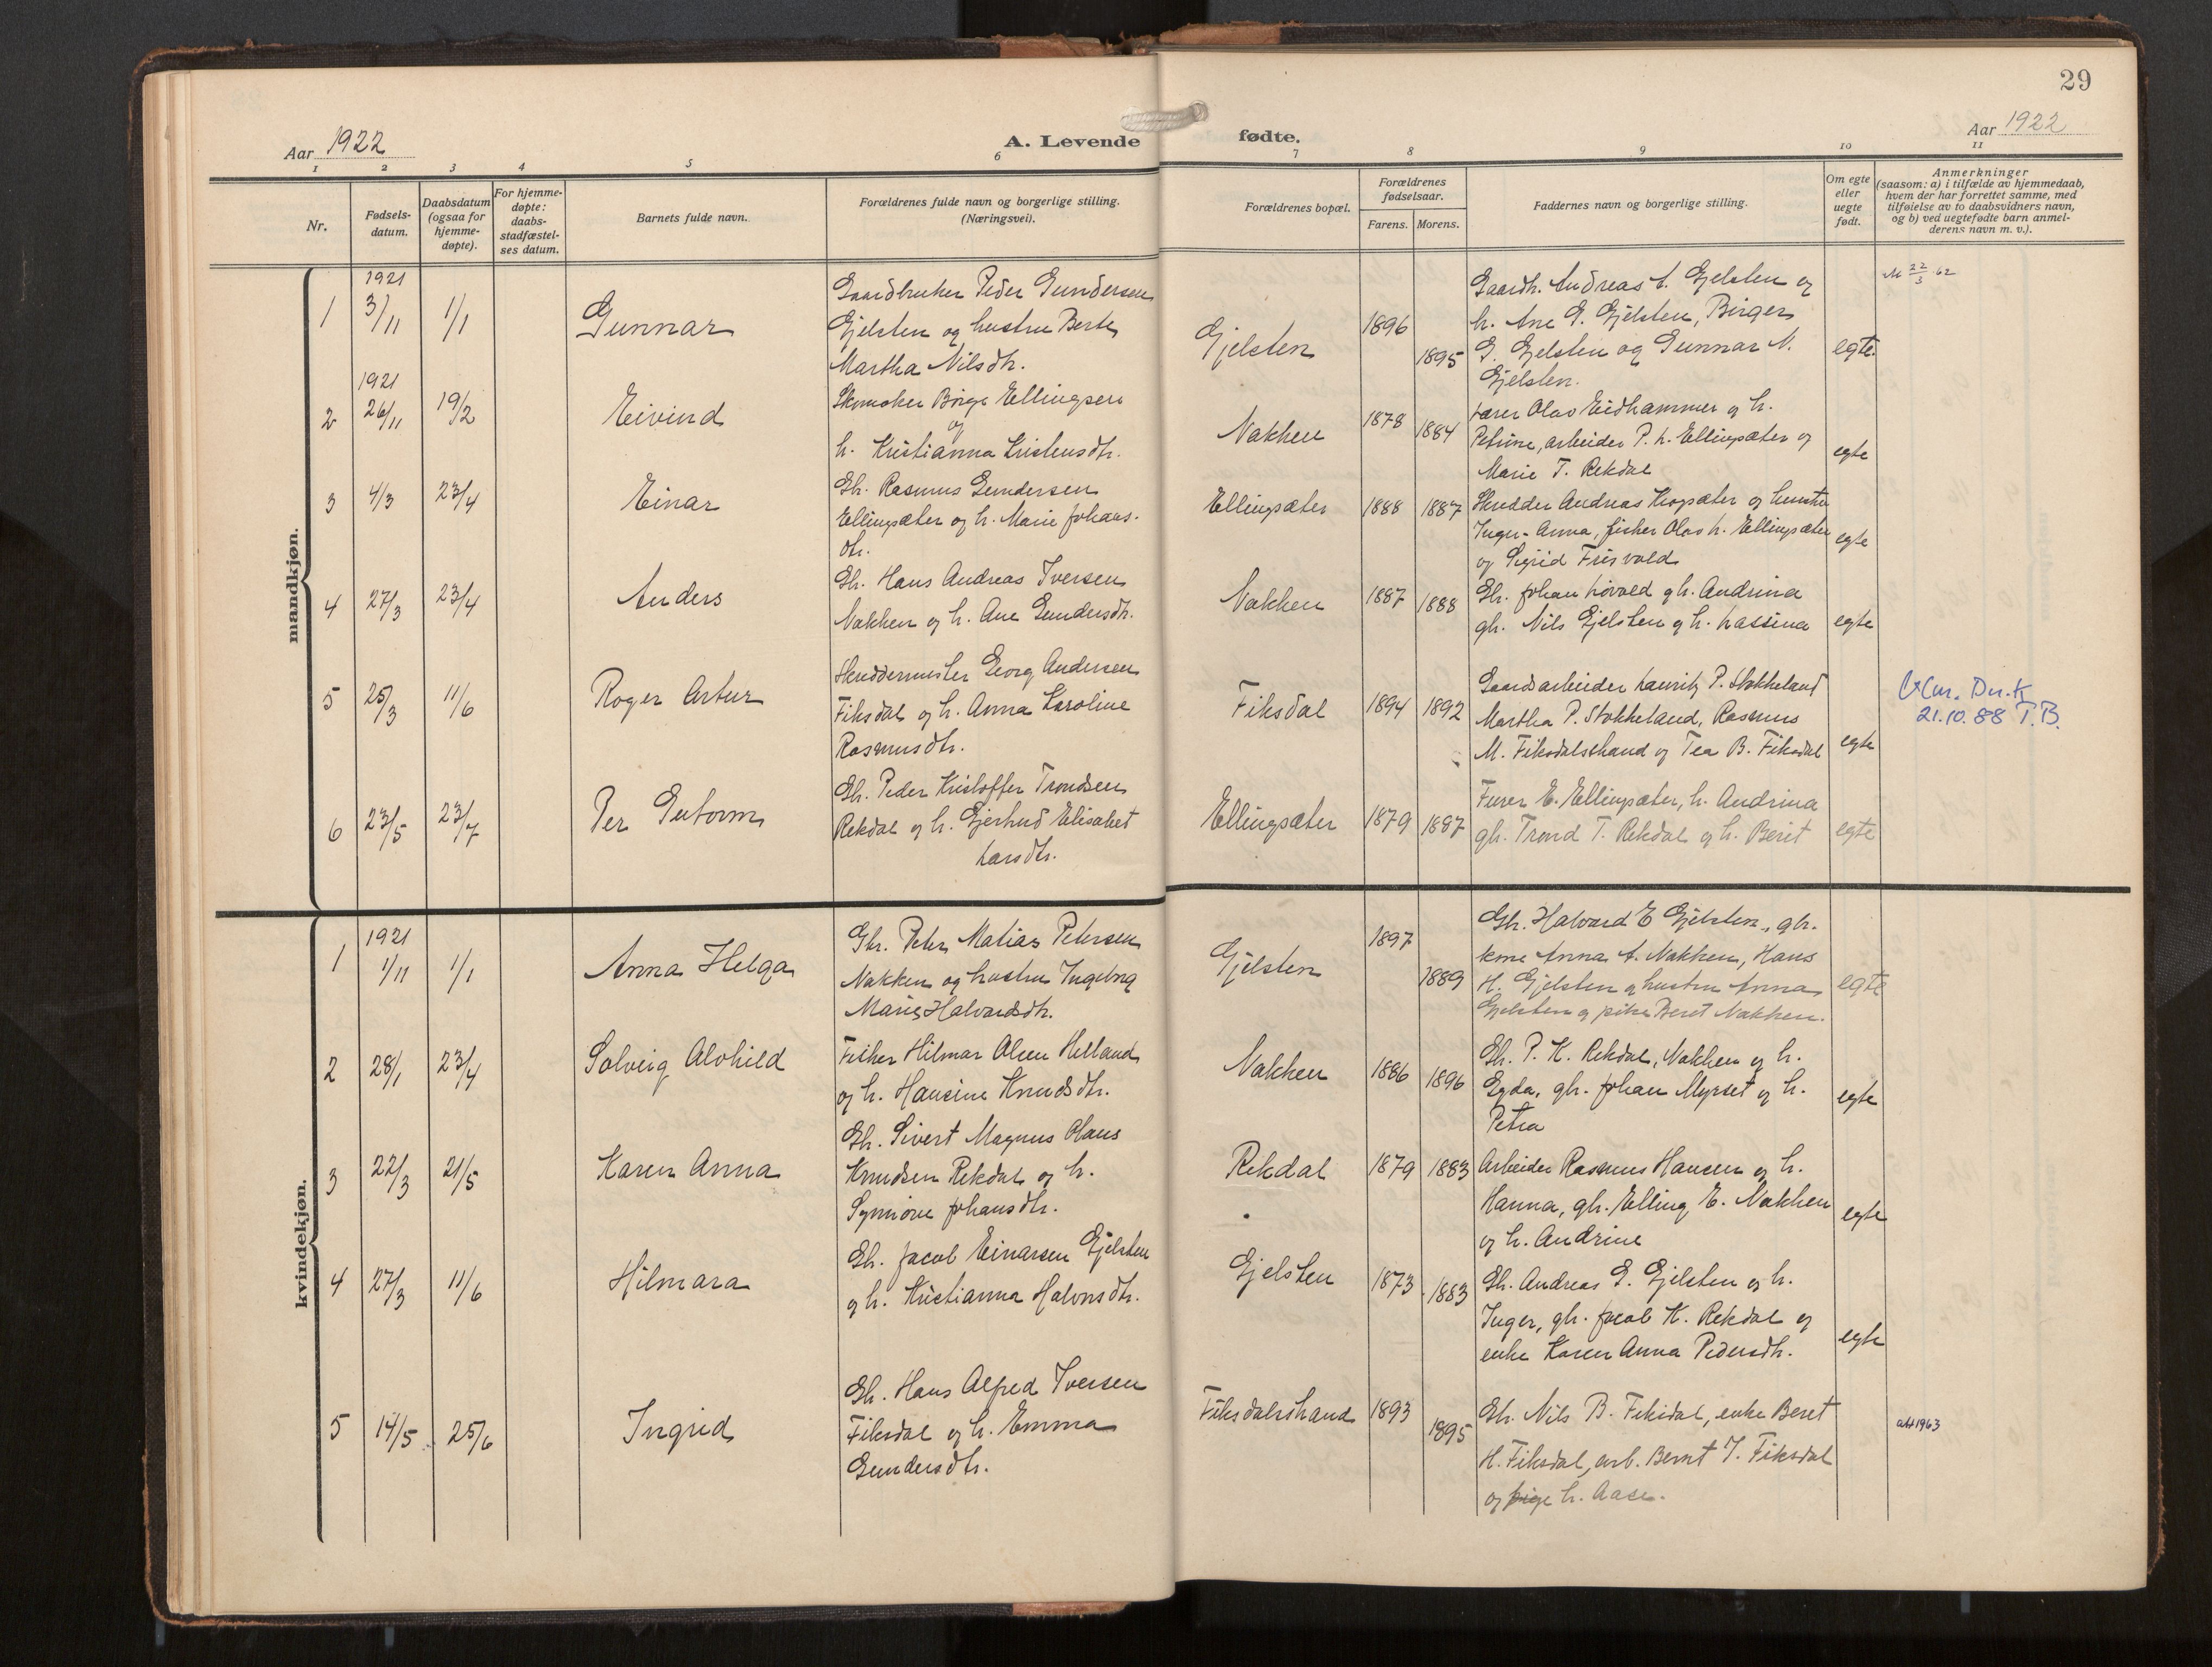 29
Aar 1922
A. Levende
fødte.
Aar 1922
1 2 3 4 5 6 7 8 9 10 11
Nr.
Fødsels-
datum.
Daabsdatum
(ogsaa for
hjemme-
døpte).
For hjemme-
døpte:
daabs-
stadfæstel-
ses datum.
Barnets fulde navn.
Forældrenes fulde navn og borgerlige stilling.
(Næringsvei).
Forældrenes bopæl.
Forældrenes
fødselsaar.
Farens. Morens.
Faddernes navn og borgerlige stilling.
Om egte
eller
uegte
født.
Anmerkninger
(saasom: a) i tilfælde av hjemmedaab,
hvem der har forrettet samme, med
tilføielse av to daabsvidners navn,
og b) ved uegtefødte barn anmel-
derens navn m. v.).
mandkjøn.
1
1921
3/11
1/1
Gunnar
Gaardbruker Peder Gundersen
Gjelsten og hustru Berte
Martha Nilsdtr.
Gjelsten
1896
1895
Gaardb. Andreas A. Gjelsten og
h. Ane G. Gjelsten, Birger
G. Gjelsten og Gunnar N.
Gjelsten.
egte
M 22/3 62
2
1921
26/11
19/2
Eivind
Skomaker Børge Ellingsen
og
h. Kristianna Kristensdtr.
Nakken
1878
1884
Olav Eidhammer og h.
Petrine, arbeider P. L. Ellingsæter og
Marie T. Rekdal
egte
3
4/3
23/4
Einar
Gbr. Rasmus Gundersen
Ellingsæter og h. Marie Johans-
dtr.
Ellingsæter
1888
1887
Skrædder Andreas Kropsæter og hustru
Inger-Anna, fisker Olav L. Ellingsæter
og Sigrid Frisvold
egte
4
27/3
23/4
Anders
Gbr. Hans Andreas Iversen
Nakken og h. Ane Gundersdtr.
Nakken
1887
1888
Gbr. Johan Løvold og h. Andrina
gbr. Nils Gjelsten og h. Lassina
egte
5
25/3
11/6
Roger Artur
Skræddermester Georg Andersen
Fiksdal og h. Anna Karoline
Rasmusdtr.
Fiksdal
1894
1892
Gaardsarbeider Lauritz P. Stokkeland
Martha P. Stokkeland, Rasmus
M. Fiksdalstrand og Tea B. Fiksdal
egte
21.10.88 T.B.
6
23/5
23/7
Per Gutorm
Gbr. Peder Kristoffer Trondsen
Rekdal og h. Gjertrud Elisabet
Larsdtr.
Ellingsæter
1879
1887
Furer E. Ellingsæter, h. Andrina
gbr. Trond T. Rekdal og h. Berit
egte
kvindekjøn.
1
1921
1/11
1/1
Anna Helga
Gbr. Peter Matias Petersen
Nakken og hustru Ingeborg
Marie Halvardsdtr.
Gjelsten
1897
1889
Gbr. Halvard E Gjelsten, gbr.
kone Anna A. Nakken, Hans
H. Gjelsten og hustru Anna
Gjelsten og pike Beret Nakken.
egte
2
28/1
23/4
Solveig Alvhild
Fisker Hilmar Olsen Helland
og h. Hansine Knudsdtr.
Nakken
1886
1896
Gbr. P. K. Rekdal, Nakken og h.
Egda, gbr. Johan Myrset og h.
Petra
egte
3
22/3
21/5
Karen Anna
Gbr. Sivert Magnus Olaus
Knudsen Rekdal og h.
Synnøve Johansdtr.
Rekdal
1879
1883
Arbeider Rasmus Hansen og h.
Hanna, gbr. Elling E. Nakken
og h. Andrine
egte
4
27/3
11/6
Hilmara
Gbr. Jacob Einarsen Gjelsten
og h. Kristianna Halvorsdtr.
Gjelsten
1873
1883
Gbr. Andreas G. Gjelsten og h.
Inger, gbr. Jacob K. Rekdal og
enke Karen Anna Pedersdtr.
egte
5
14/5
25/6
Ingrid
Gbr. Hans Alfred Iversen
Fiksdal og h. Emma
Gundersdtr.
Fiksdalstrand
1893
1895
Gbr. Nils B. Fiksdal, enke Beret
H. Fiksdal, arb. Bernt I. Fiksdal
og pige h. Aase.
att 1963